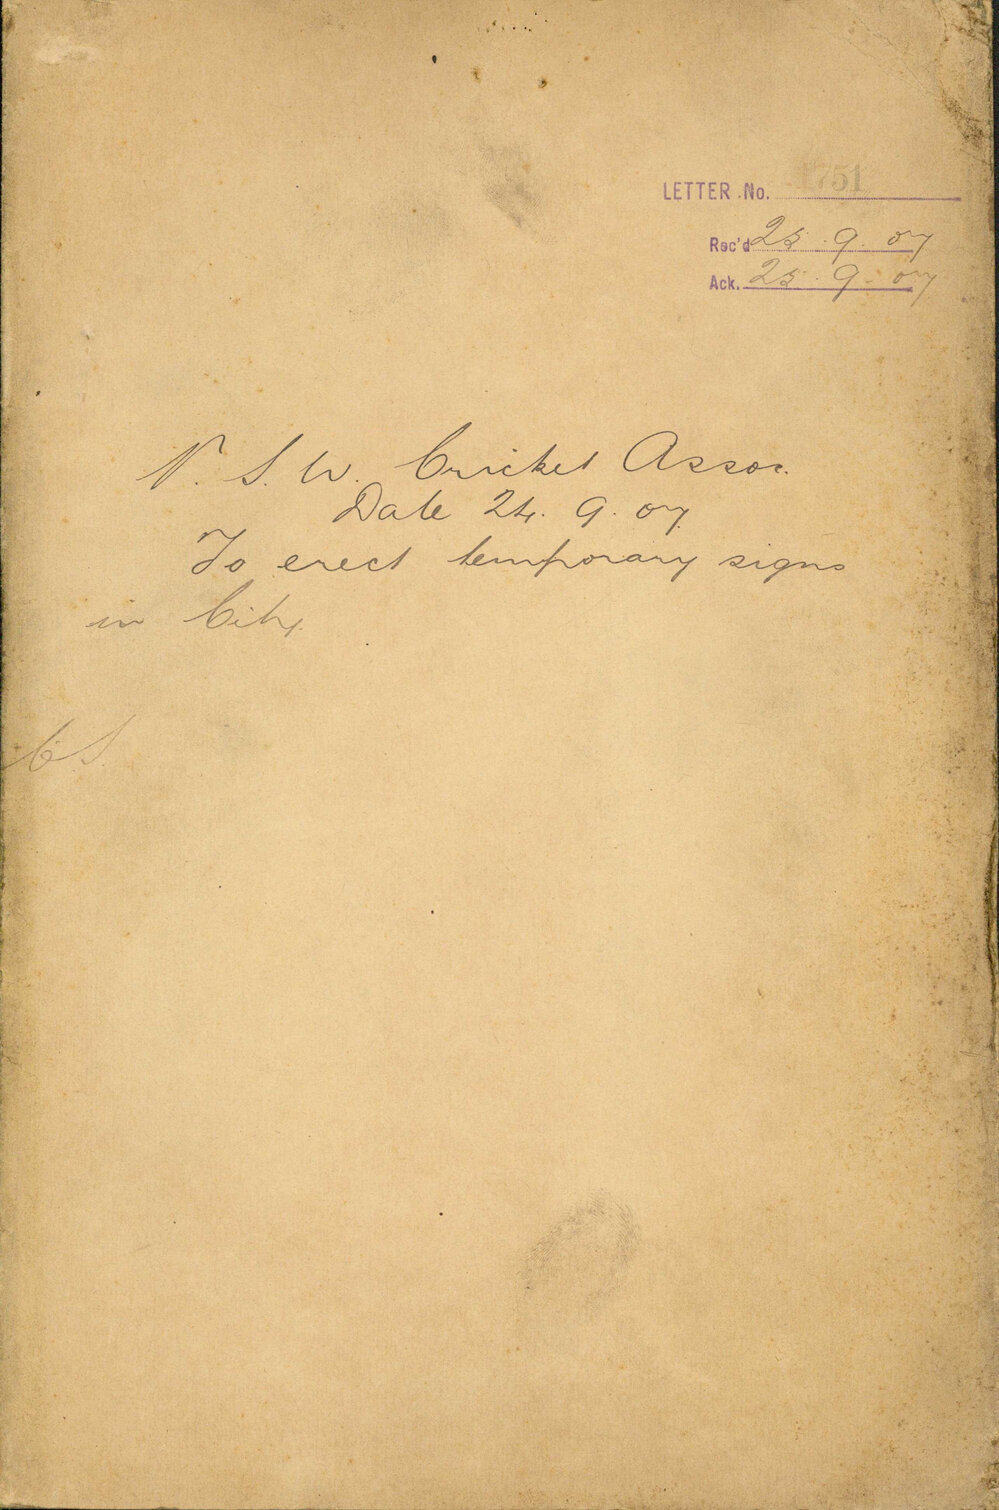 LETTER No. 1751
Rec'd 25. 9. 07
Ack. 25. 9. 07
N. S. W. Cricket Assoc.
Date 24. 9. 07
To erect temporary signs
in City.
C.S.